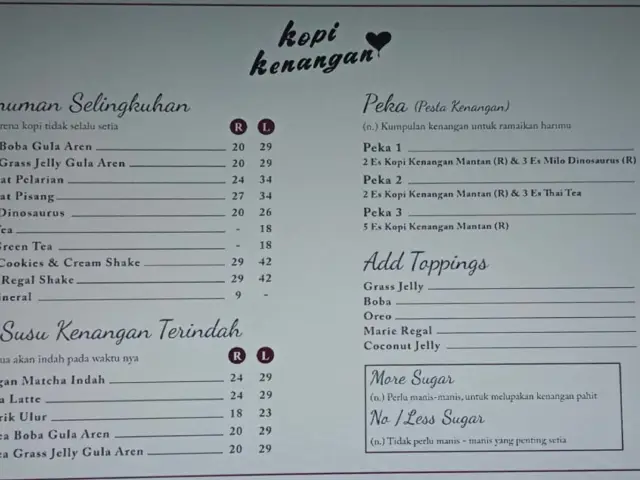 kopi
kenangan
numan Selingkuhan
rena kopi tidak selalu setia R L
Boba Gula Aren 20 29
Grass Jelly Gula Aren 20 29
at Pelarian 24 34
at Pisang 27 34
Dinosaurus 20 26
ea - 18
reen Tea - 18
Cookies & Cream Shake 29 42
Regal Shake 29 42
ineral 9 -
Susu Kenangan Terindah
ua akan indah pada waktu nya R L
gan Matcha Indah 24 29
a Latte 24 29
rik Ulur 18 23
ea Boba Gula Aren 20 29
ea Grass Jelly Gula Aren 20 29
Peka (Pesta Kenangan)
(n.) Kumpulan kenangan untuk ramaikan harimu
Peka 1
2 Es Kopi Kenangan Mantan (R) & 3 Es Milo Dinosaurus (R)
Peka 2
2 Es Kopi Kenangan Mantan (R) & 3 Es Thai Tea
Peka 3
5 Es Kopi Kenangan Mantan (R)
Add Toppings
Grass Jelly
Boba
Oreo
Marie Regal
Coconut Jelly
More Sugar
(n.) Perlu manis-manis, untuk melupakan kenangan pahit
No / Less Sugar
(n.) Tidak perlu manis - manis yang penting setia